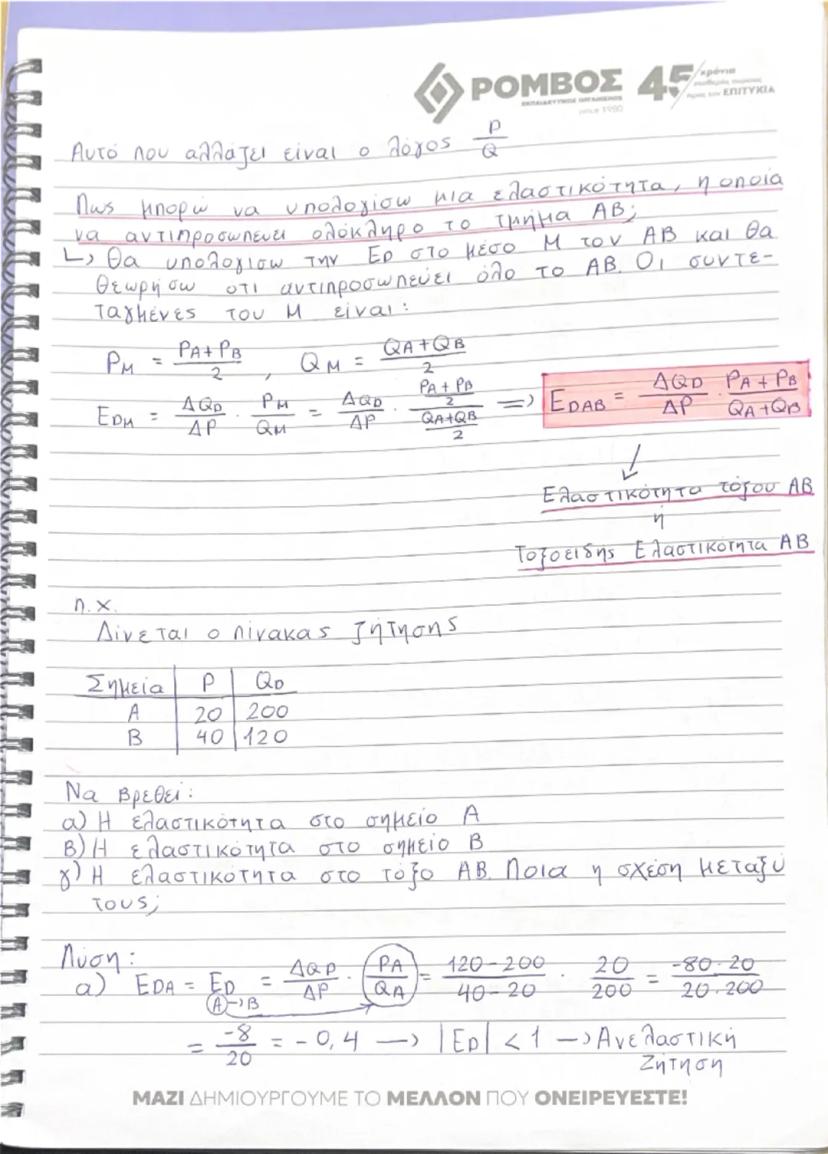 ΡΟΜΒΟΣ 45 χρόνια
ΕΚΠΑΙΔΕΥΤΙΚΟΣ ΟΡΓΑΝΙΣΜΟΣ προς την ΕΠΙΤΥΧΙΑ
since 1980
Αυτό που αλλάζει είναι ο λόγος P/Q
Πως μπορώ να υπολογίσω μια ελαστικότητα, η οποία
να αντιπροσωπευει ολόκληρο το τμήμα AB;
↳ Θα υπολογισω την ED στο μέσο M του AB και θα
θεωρήσω οτι αντιπροσωπεύει όλο το AB. Οι συντε-
ταγμένες του M είναι:
PM = (PA+PB)/2 , QM = (QA+QB)/2
EDM = ΔQD/ΔP · PM/QM = ΔQD/ΔP · ((PA+PB)/2)/((QA+QB)/2) => EDAB = ΔQD/ΔP · (PA+PB)/(QA+QB)
Ελαστικότητα τόξου AB
ή
Τοξοειδης Ελαστικότητα AB
π.χ.
Δίνεται ο πίνακας ζήτησης
Σημεία P QD
A 20 200
B 40 120
Να βρεθεί:
α) Η ελαστικότητα στο σημείο A
β) Η ελαστικότητα στο σημείο B
γ) Η ελαστικότητα στο τόξο AB. Ποια η σχέση μεταξύ
τους;
Λύση:
α) EDA = ED = ΔQD/ΔP · PA/QA = (120-200)/(40-20) · 20/200 = (-80·20)/(20·200)
A→B
= -8/20 = -0,4 → |ED| < 1 → Ανελαστική
Ζήτηση
ΜΑΖΙ ΔΗΜΙΟΥΡΓΟΥΜΕ ΤΟ ΜΕΛΛΟΝ ΠΟΥ ΟΝΕΙΡΕΥΕΣΤΕ!